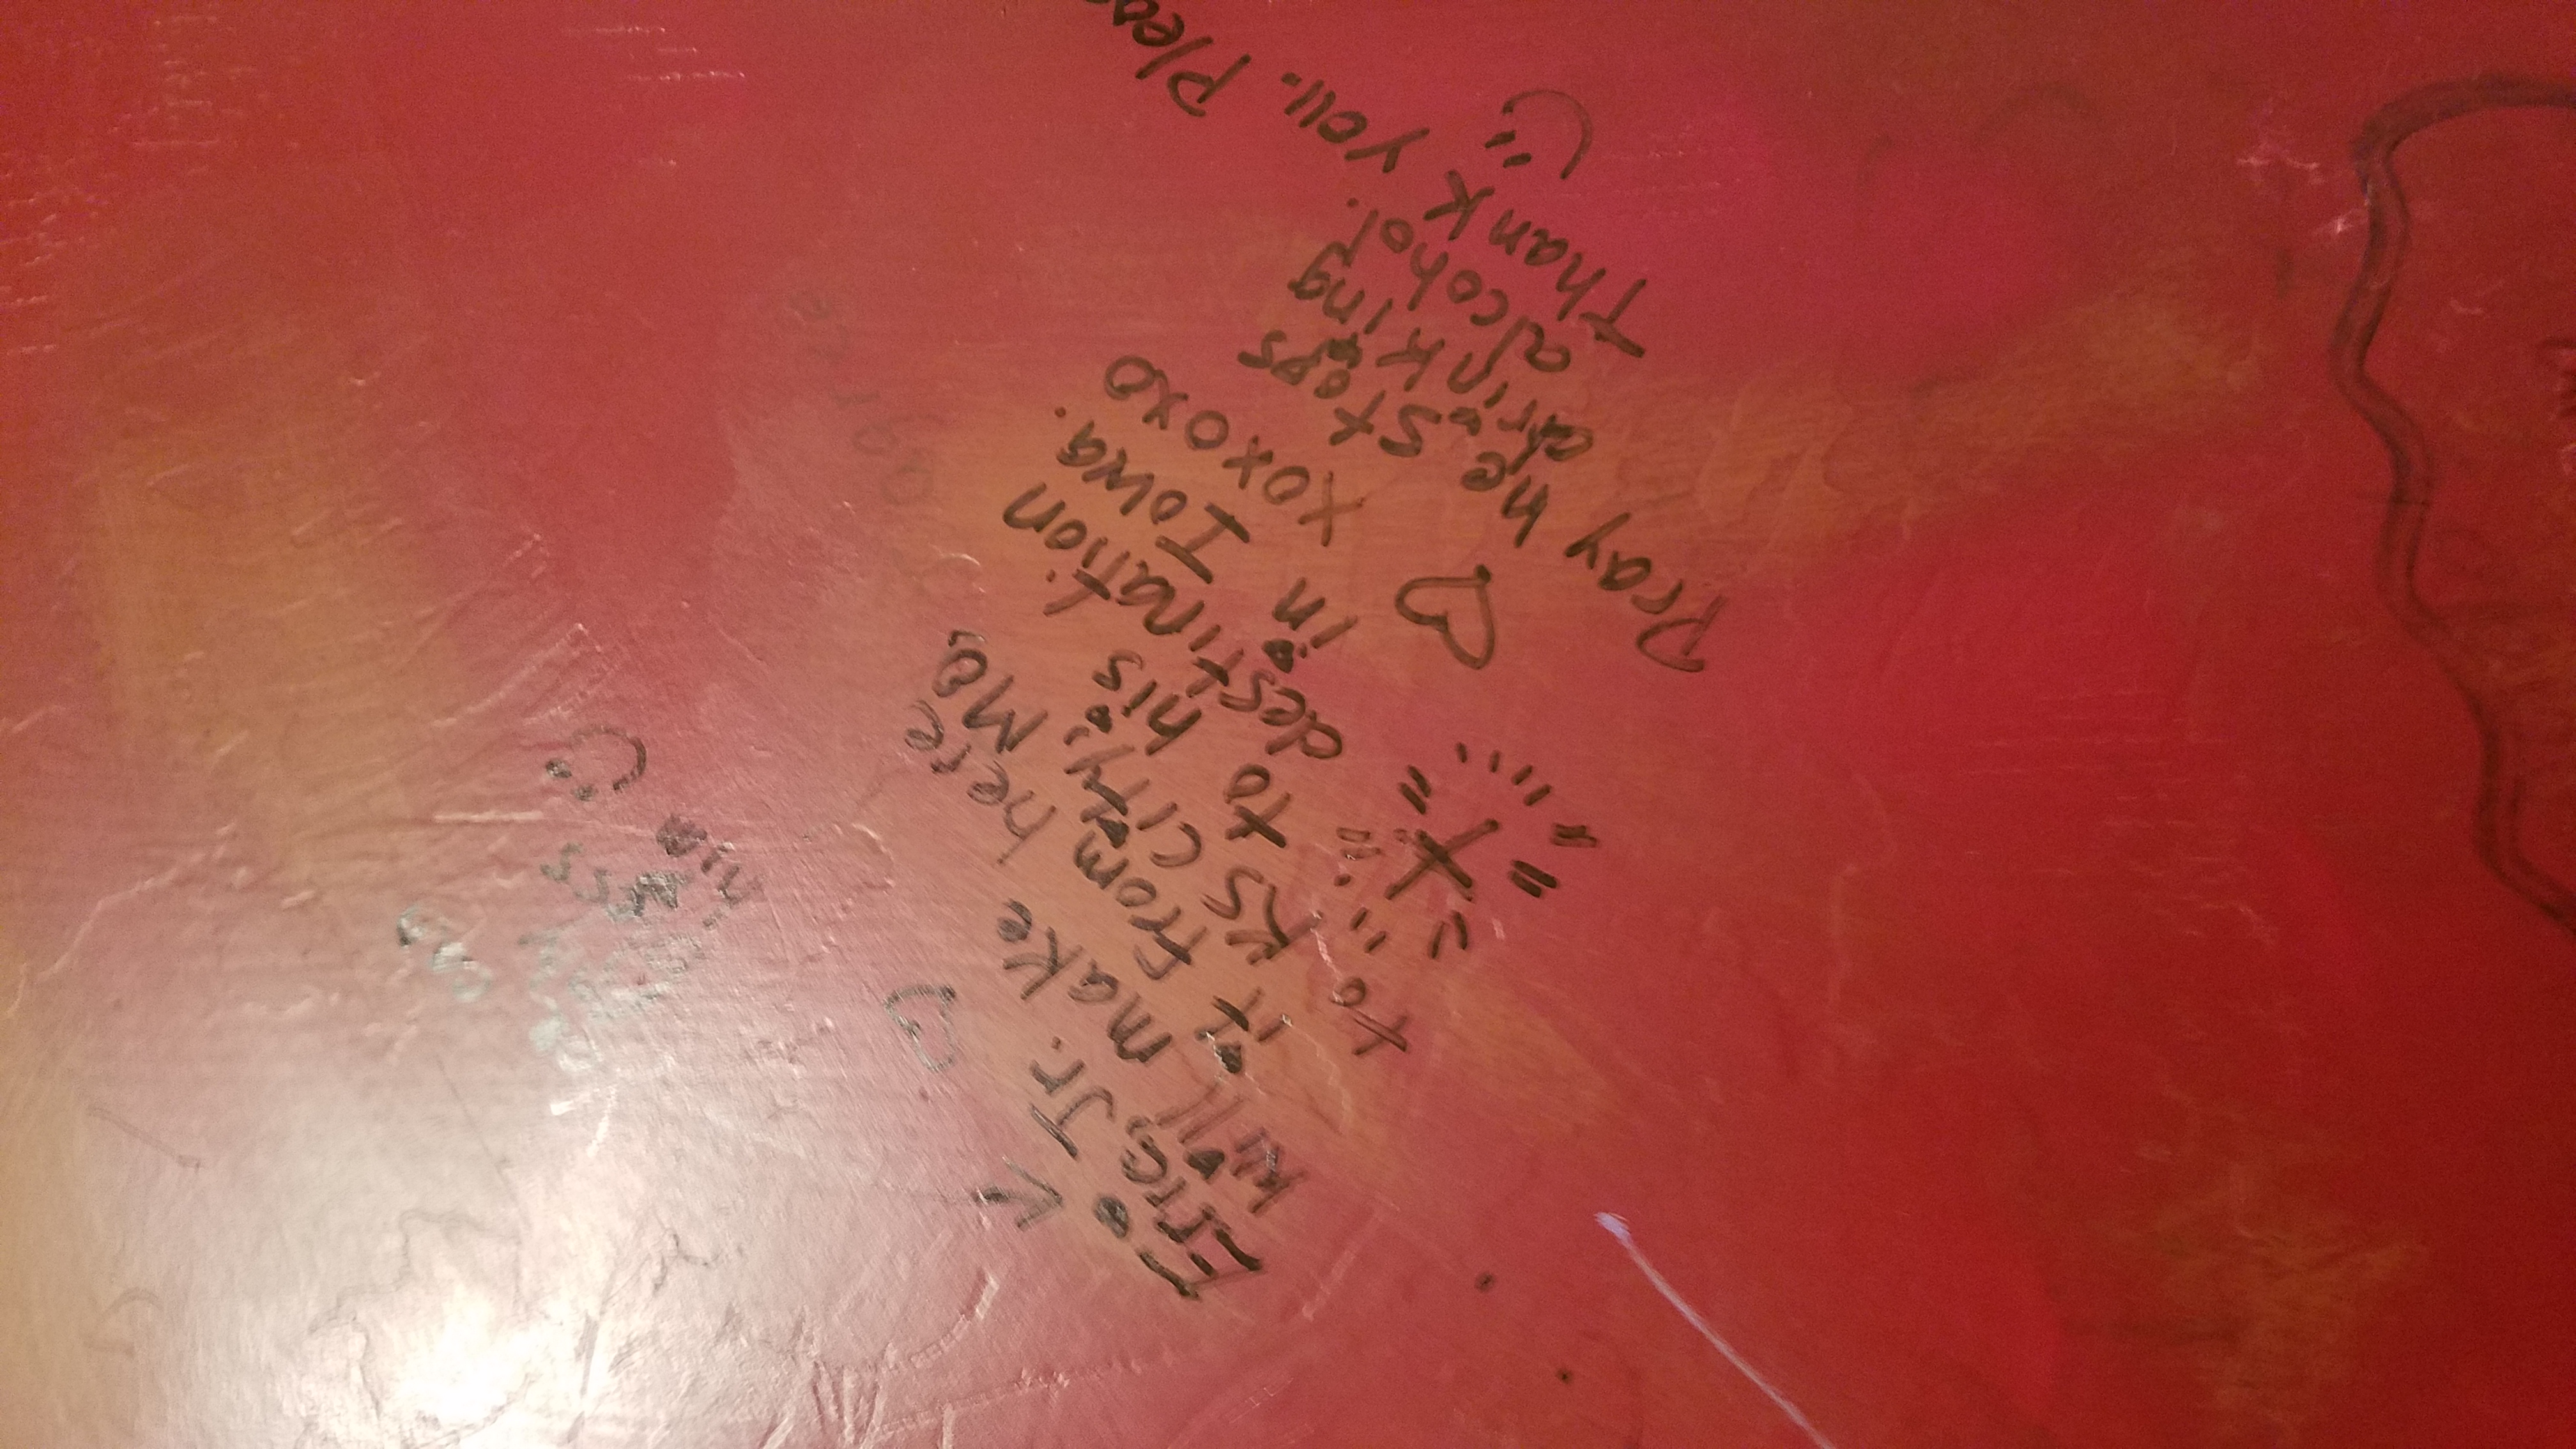 Eric, Jr.
will make
it from here
to KS City, Mo,
to his
destination
in Iowa.
xoxoxo
Pray he stops
drinking
alcohol.
Thank you.